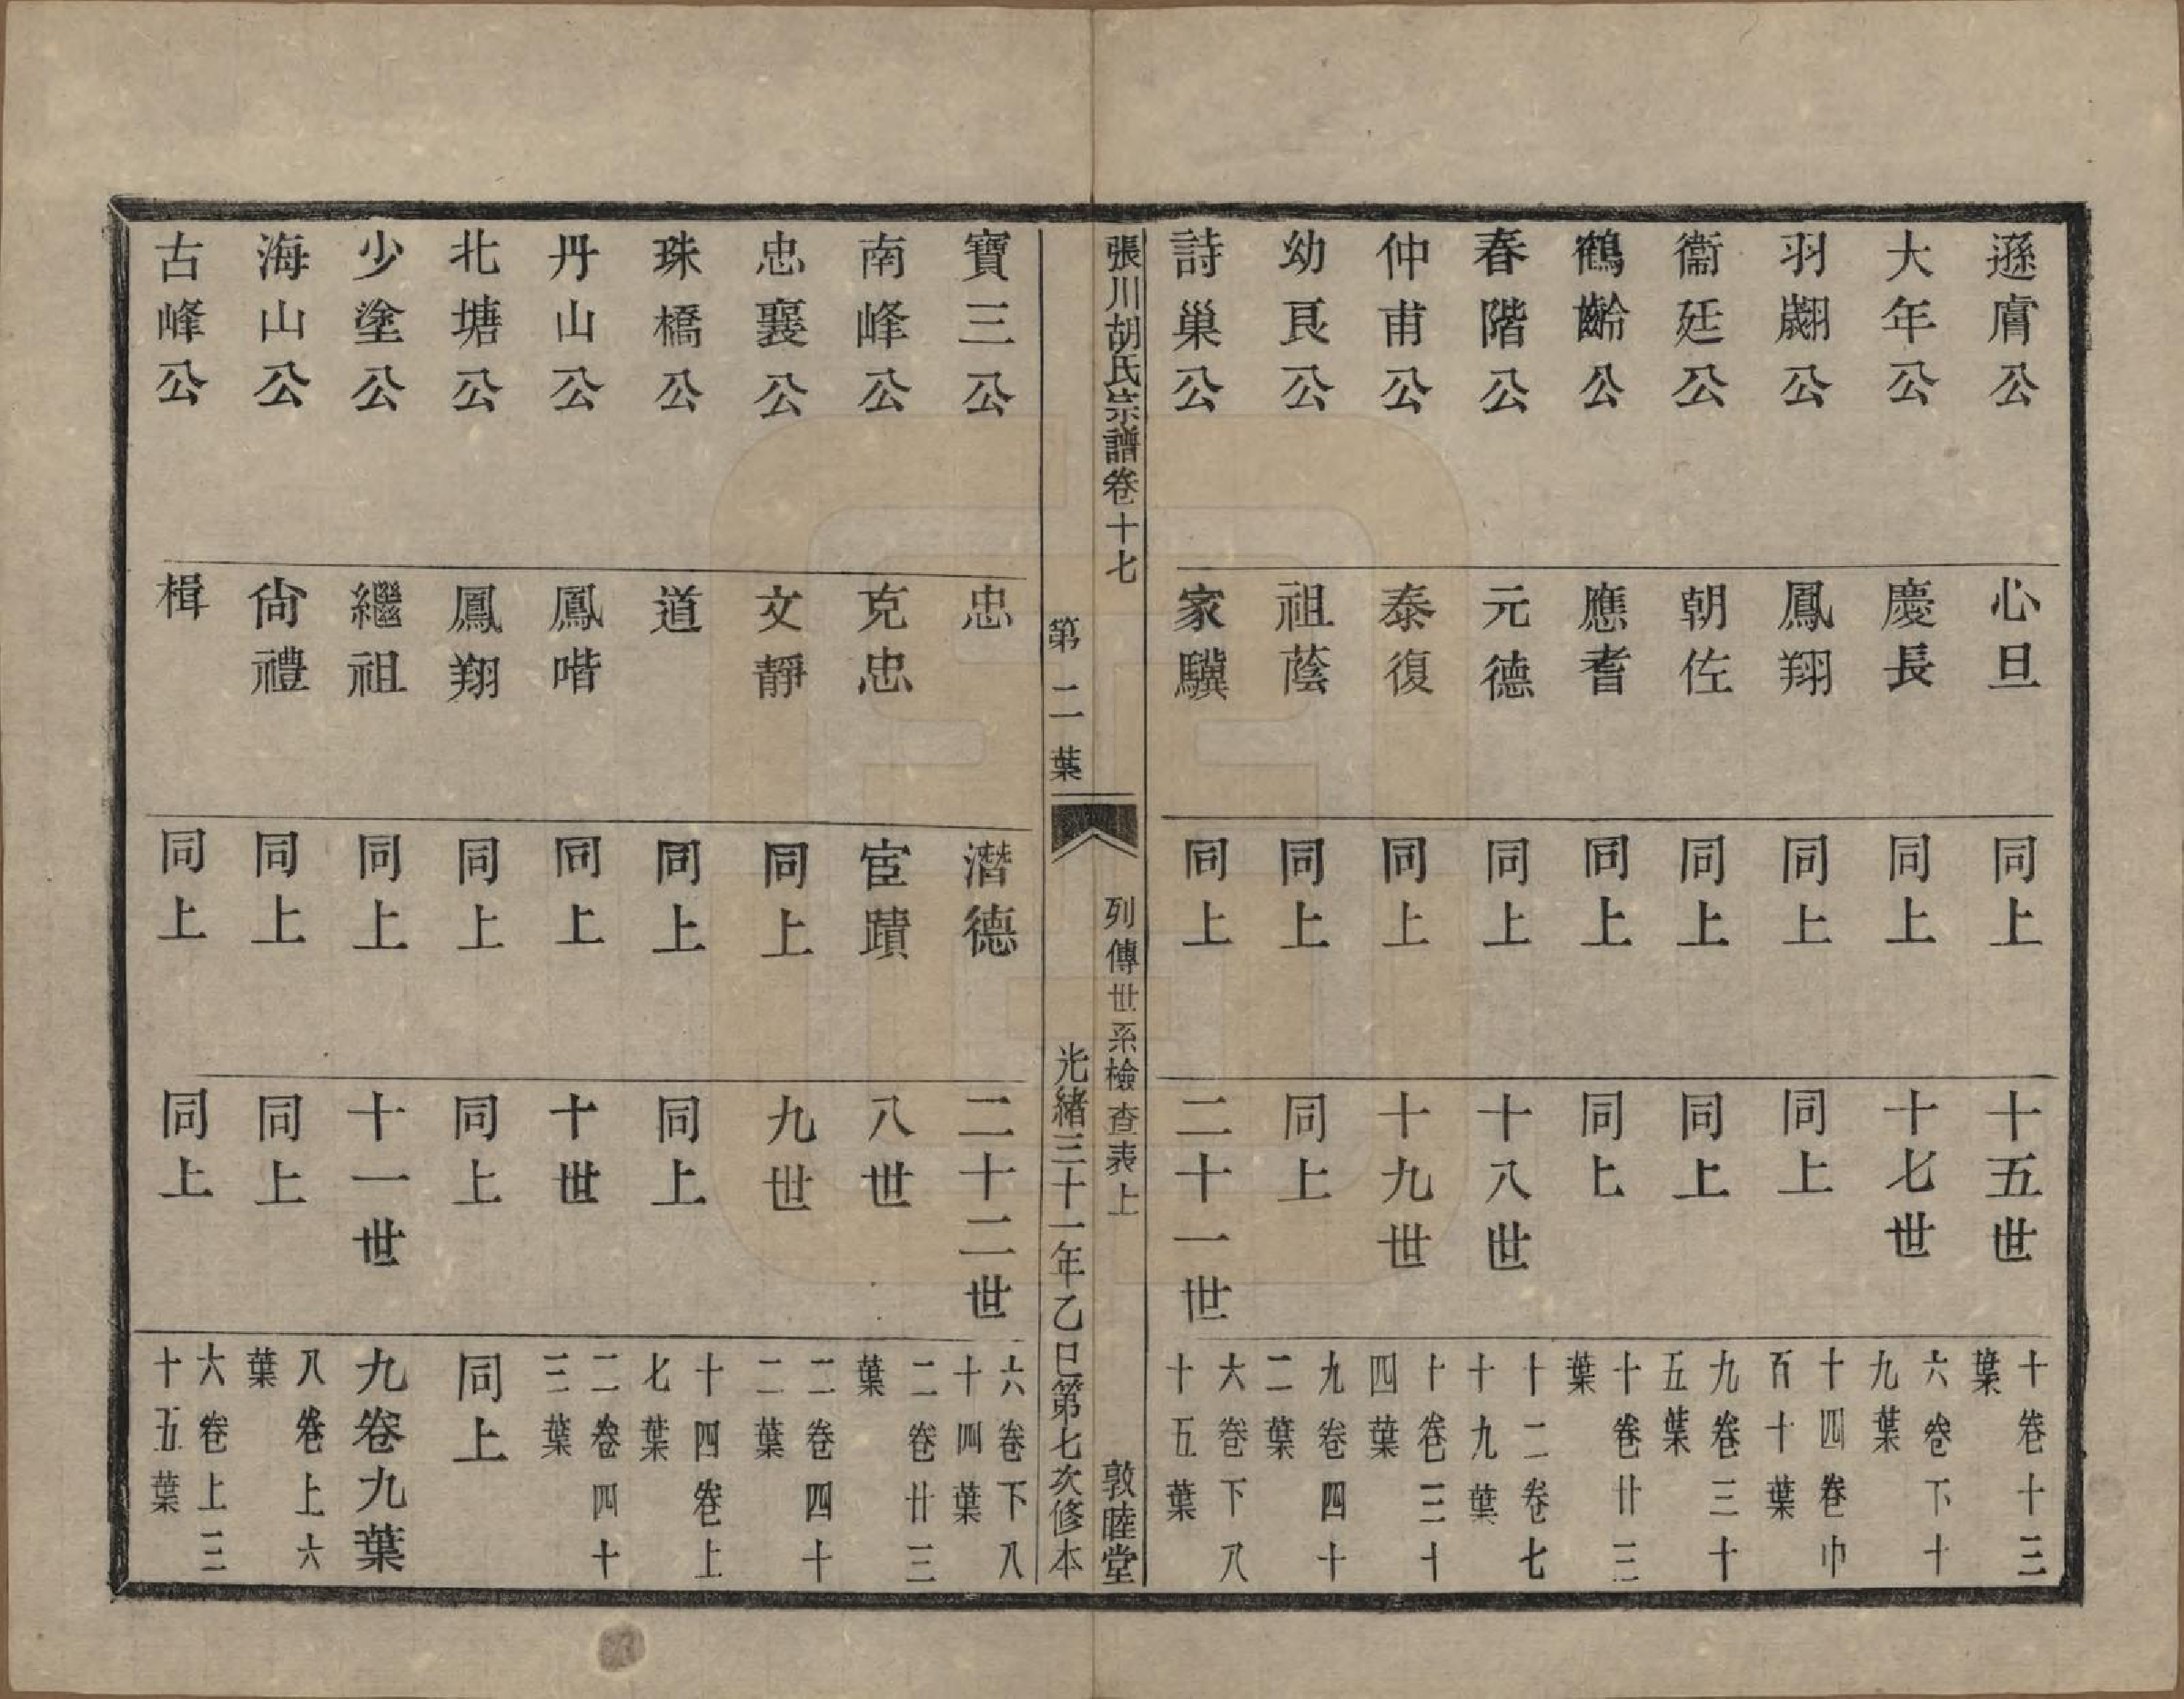 遜膚公　心旦　同上　十五世　十卷十三葉
大年公　慶長　同上　十七世　六卷下十九葉
羽翽公　鳳翔　同上　同上　十四卷巾百十葉
衞廷公　朝佐　同上　同上　九卷三十五葉
鶴齡公　應耆　同上　同上　十卷廿三葉
春階公　元德　同上　十八世　十二卷七十九葉
仲甫公　泰復　同上　十九世　十卷三十四葉
幼艮公　祖蔭　同上　同上　九卷四十二葉
詩巢公　家驥　同上　二十一世　六卷下八十五葉
張川胡氏宗譜卷十七　列傳世系檢查表上　敦睦堂
第二葉　光緒三十一年乙巳第七次修本
寶三公　忠　潛德　二十二世　六卷下八十四葉
南峰公　克忠　宦蹟　八世　二卷廿三葉
忠襄公　文靜　同上　九世　二卷四十二葉
珠橋公　道　同上　同上　十四卷上七葉
丹山公　鳳喈　同上　十世　二卷四十三葉
北塘公　鳳翔　同上　同上　同上
少塗公　繼祖　同上　十一世　九卷九葉
海山公　尙禮　同上　同上　八卷上六葉
古峰公　楫　同上　同上　六卷上三十五葉